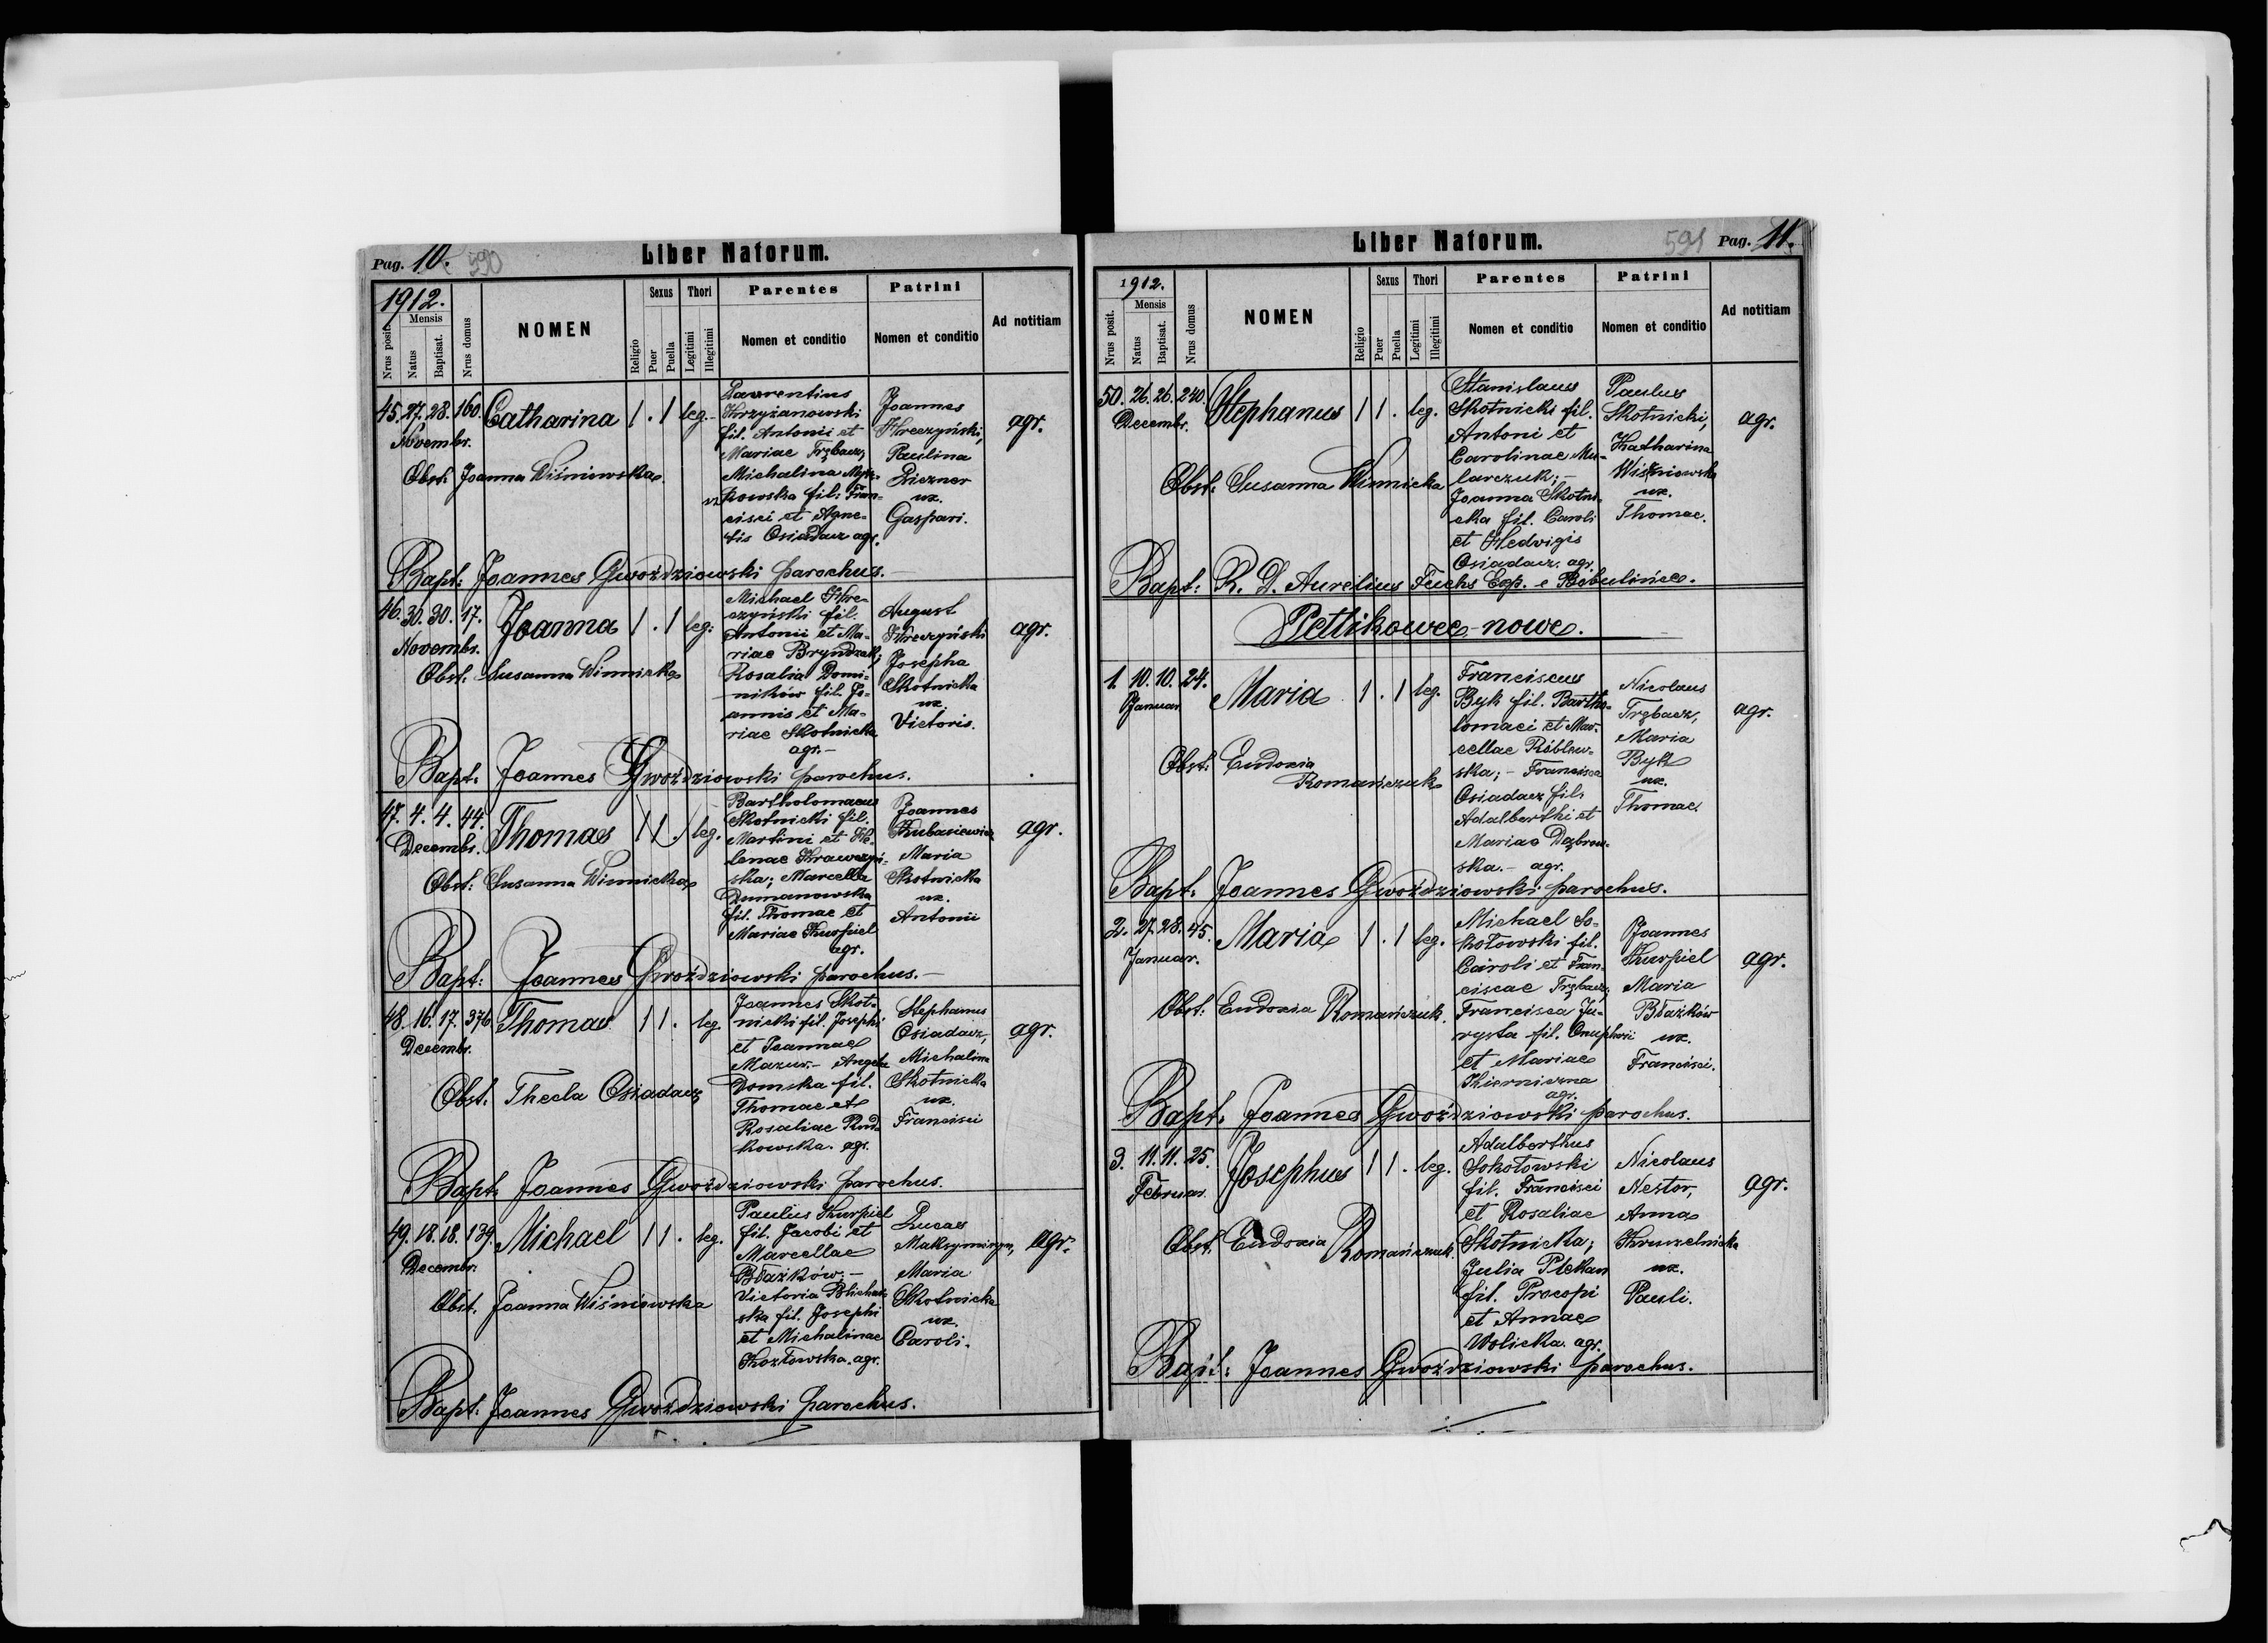 Pag. 10. 590
Liber Natorum.
1912.
Nrus posit.
Mensis
Natus
Baptisat.
Nrus domus
NOMEN
Religio
Sexus
Puer
Puella
Thori
Legitimi
Illegitimi
Parentes
Nomen et conditio
Patrini
Nomen et conditio
Ad notitiam
45. 27. 28. 160. Catharina 1 . 1 leg.
Novembr.
Obst: Joanna Wiśniowska
Laurentius
Krzyżanowski
fil. Antonii et
Mariae Trębacz;
Michalina
kowska fil. Fran-
cisci et Agne-
tis Osiadacz agr.
Joannes
Kreczyński,
Paulina
Liczner
ux.
Gaspari.
agr.
Bapt: Joannes Gwoździowski parochus.
46. 30. 30. 17. Joanna 1 . 1 leg.
Novembr.
Obst. Susanna Winnicka
Michael Kre-
czyński fil.
Antonii et Ma-
riae Bryndzak;
Rosalia Domi-
ników fil. Jo-
annis et Ma-
riae Skotnicka
agr. -
August
Kreczyński
Josepha
Skotnicka
ux.
Victoris.
agr.
Bapt. Joannes Gwoździowski parochus.
47. 4. 4. 44. Thomas 1 1 leg.
Decembr.
Obst: Susanna Winnicka
Bartholomaeus
Skotnicki fil.
Martini et He-
lenae Krawczyń-
ska; Marcella
Dumanowska
fil. Thomae et
Mariae Kurpiel
agr.
Joannes
Kubasiewicz
Maria
Skotnicka
ux.
Antonii
agr.
Bapt: Joannes Gwoździowski parochus. -
48. 16. 17. 376 Thomas 1 1 . leg.
Decembr.
Obst. Thecla Osiadacz
Joannes Skot-
nicki fil. Josephi
et Joannae
Mazur. - Angela
Domska fil.
Thomae et
Rosaliae Rud-
kowska. agr.
Stephanus
Osiadacz,
Michalina
Skotnicka
ux.
Francisci
agr.
Bapt. Joannes Gwoździowski parochus.
49. 18. 18. 139. Michael 1 1 . leg.
Decembr.
Obst. Joanna Wiśniowska
Paulus Kurpiel
fil. Jacobi et
Marcellae
Błażków; -
Victoria
ska fil. Josephi
et Michalinae
Kozłowska. agr.
Lucas
Maksymczyn,
Maria
Skotnicka
ux.
Caroli.
agr.
Bapt: Joannes Gwoździowski parochus.
Liber Natorum.
591 Pag. 11.
1912.
Nrus posit.
Mensis
Natus
Baptisat.
Nrus domus
NOMEN
Religio
Sexus
Puer
Puella
Thori
Legitimi
Illegitimi
Parentes
Nomen et conditio
Patrini
Nomen et conditio
Ad notitiam
50. 26. 26. 240. Stephanus 1 1 . leg.
Decembr.
Obst: Susanna Winnicka
Stanislaus
Skotnicki fil.
Antoni et
Carolinae Mu-
larczuk; -
Joanna Skotni-
cka fil. Caroli
et Hedvigis
Osiadacz. agr.
Paulus
Skotnicki,
Katharina
Wiśniowska
ux.
Thomae.
agr.
Bapt: R. D. Aurelius Fuchs Exp. e Bobulińce.
Petlikowce-nowe.
1. 10. 10. 24. Maria 1 . 1 leg.
Januar
Obst: Eudoxia
Romańczuk
Franciscus
Byk fil. Bartho-
lomaei et Mar-
cellae Róblew-
ska; - Francisca
Osiadacz fil.
Adalberthi et
Mariae Dąbrow-
ska. - agr.
Nicolaus
Trębacz,
Maria
Byk
ux.
Thomae.
agr.
Bapt: Joannes Gwoździowski parochus.
2. 27. 28. 45. Maria 1 . 1 leg.
Januar.
Obst. Eudoxia Romańczuk.
Michael So-
kołowski fil.
Caroli et Fran-
ciscae Trębacz;
Francisca Ju-
rysta fil. Onuphrii
et Mariae
Kierniczna
agr.
Joannes
Kurpiel
Maria
Błażków
ux.
Francisci.
agr.
Bapt. Joannes Gwoździowski parochus.
3. 11. 11. 25. Josephus 1 1 . leg.
Februar.
Obst. Eudoxia Romańczuk.
Adalberthus
Sokołowski
fil. Francisci
et Rosaliae
Skotnicka;
Julia Plekan
fil. Procopi
et Annae
Wolicka. agr.
Nicolaus
Nestor,
Anna
Kruszelnicka
ux.
Pauli.
agr.
Bapt: Joannes Gwoździowski parochus.